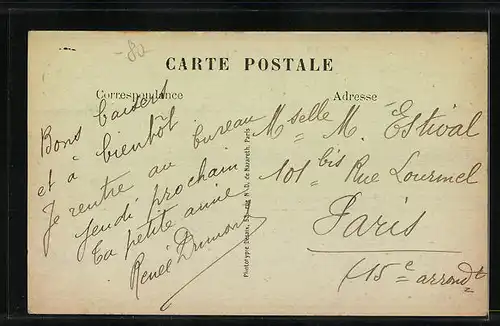 -80
CARTE POSTALE
Correspondance
Adresse
Bons baisers
et à bientôt
Je rentre au bureau
jeudi prochain
Ta petite amie
Renée Dumon
Mselle M. Estival
101 bis Rue Lourmel
Paris
(15e arrondt
Phototypie Desaix, rue de Nazareth, Paris